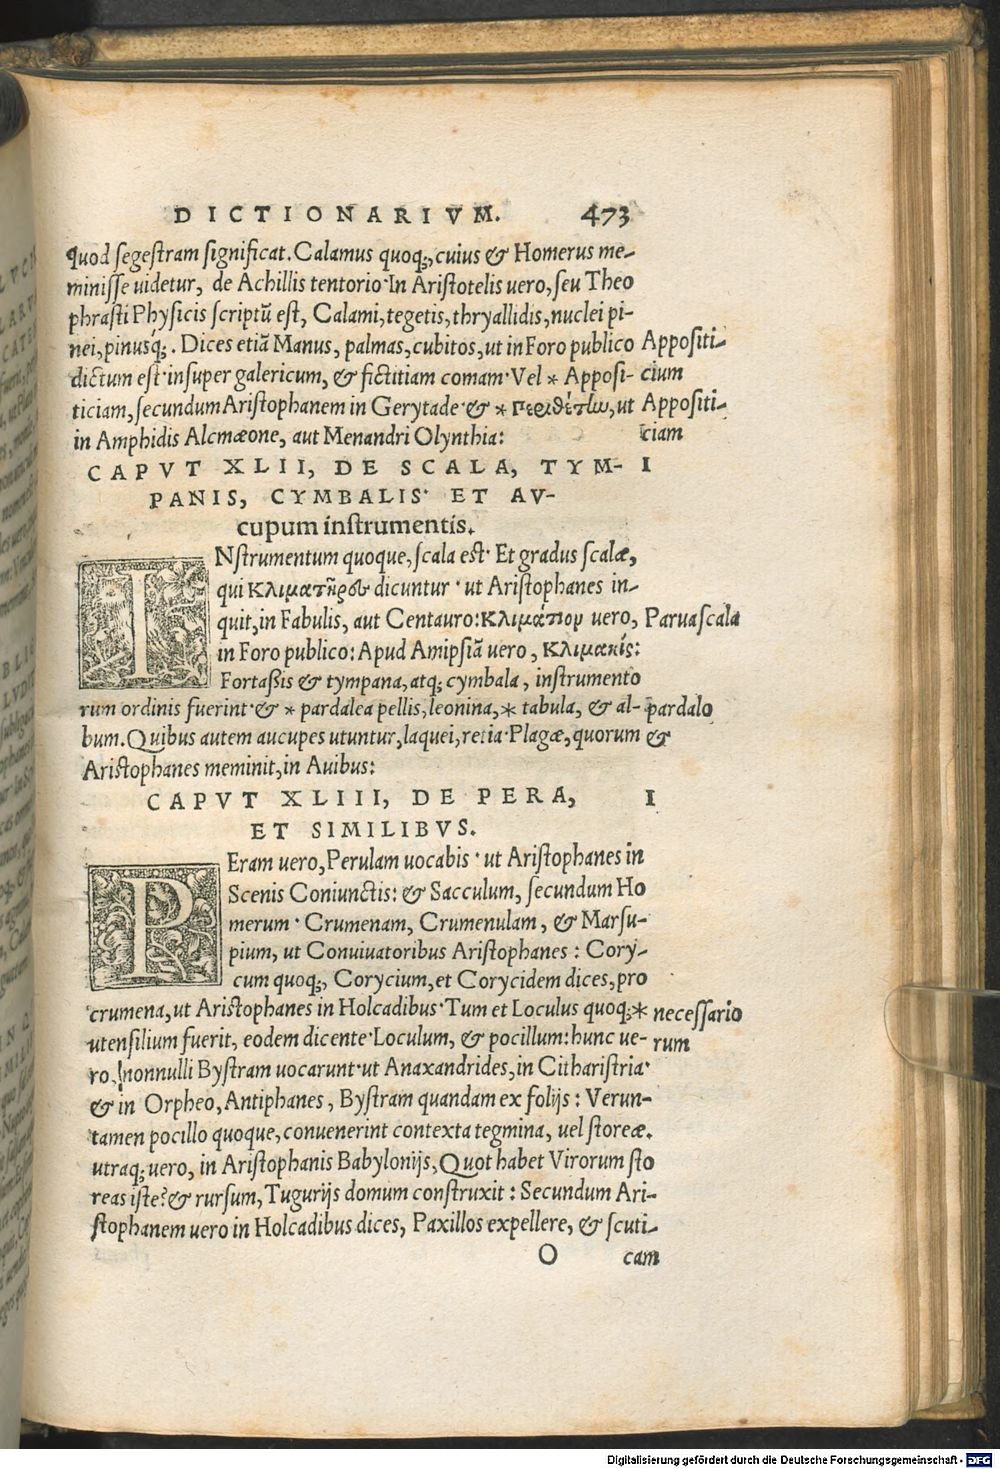 DICTIONARIVM. 473
quod segestram significat. Calamus quoq;, cuius & Homerus me-
minisse uidetur, de Achillis tentorio· In Aristotelis uero, seu Theo
phrasti Physicis scriptũ est, Calami, tegetis, thryallidis, nuclei pi-
nei, pinusq́;. Dices etiã Manus, palmas, cubitos, ut in Foro publico Appositi-
dictum est· insuper galericum, & fictitiam comam· Vel * Apposi- cium
ticiam, secundum Aristophanem in Gerytade· & * περιθέτῳ, ut Appositi-
in Amphidis Alcmæone, aut Menandri Olynthia: ciam
CAPVT XLII, DE SCALA, TYM- I
PANIS, CYMBALIS· ET AV-
cupum instrumentis.
INstrumentum quoque, scala est· Et gradus scalæ,
qui κλιματῆρου dicuntur· ut Aristophanes in-
quit, in Fabulis, aut Centauro: κλιμάπου uero, Parua scala
in Foro publico: Apud Amipsiã uero, κλιμακίς:
Fortaßis & tympana, atq; cymbala, instrumento
rum ordinis fuerint· & * pardalea pellis, leonina, * tabula, & al- pardalo
bum. Quibus autem aucupes utuntur, laquei, retia· Plagæ, quorum &
Aristophanes meminit, in Auibus:
CAPVT XLIII, DE PERA, I
ET SIMILIBVS.
PEram uero, Perulam uocabis· ut Aristophanes in
Scenis Coniunctis: & Sacculum, secundum Ho
merum· Crumenam, Crumenulam, & Marsu-
pium, ut Conuiuatoribus Aristophanes: Cory-
cum quoq;, Corycium, et Corycidem dices, pro
crumena, ut Aristophanes in Holcadibus· Tum et Loculus quoq; * necessario
utensilium fuerit, eodem dicente· Loculum, & pocillum: hunc ue- rum
ro, nonnulli Bystram uocarunt· ut Anaxandrides, in Citharistria·
& in Orpheo, Antiphanes, Bystram quandam ex folijs: Verun-
tamen pocillo quoque, conuenerint contexta tegmina, uel storeæ.
utraq; uero, in Aristophanis Babylonijs, Quot habet Virorum sto
reas iste? & rursum, Tugurijs domum construxit: Secundum Ari-
stophanem uero in Holcadibus dices, Paxillos expellere, & scuti-
O cam
Digitalisierung gefördert durch die Deutsche Forschungsgemeinschaft - DFG